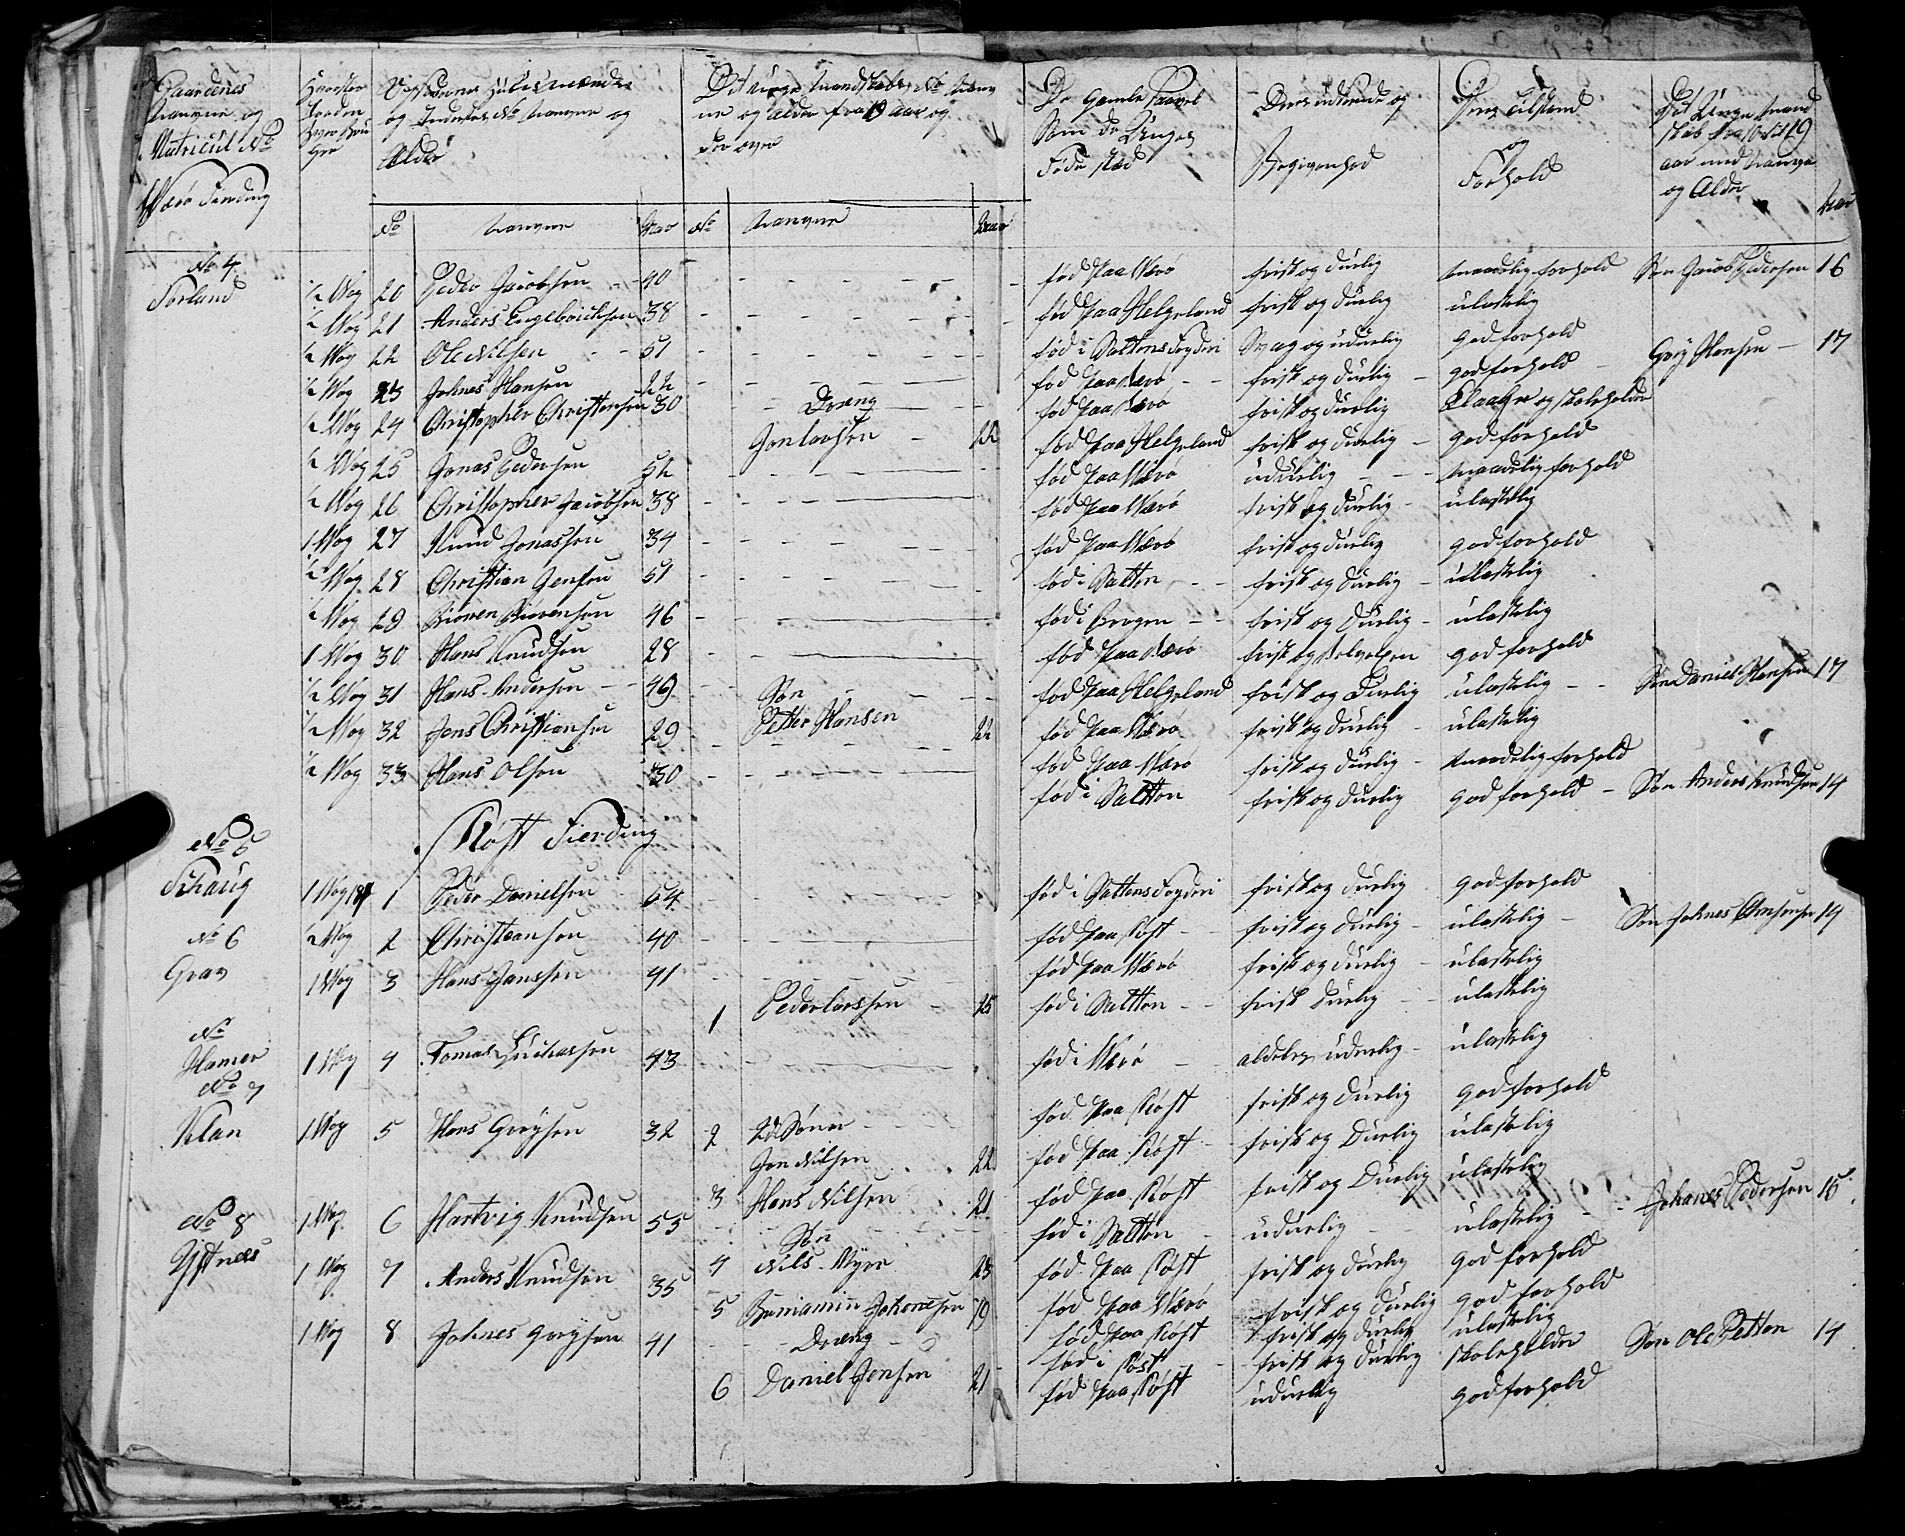 Gaardenes
Navne og
Matricul No
Værø Fierding
Hvor stor
Jorden
hver Bru-
ger
Opsiderne Huusmænde
og Inderster No Navne og
Alder
Det unge Mandskabs No Navn
ne og Alder fra 19 aar og
der over
De Gamle saavel
Som de Unges
Føde stæd
Deres udseende og
Begivenhed
Deres tilstand
og
Forhold
Det Unge Mand
skab fra til 19
aar med Navne
og Alder
No Navne Aar No Navne Aar Aar
No 4
Sørland
½ Wog 20 Peder Jacobsen 40 fød paa Værø frisk og duelig maadelig forhold Søn Jacob Pedersen 16
½ Wog 21 Anders Engebricktsen 38 fød paa Helgeland frisk og duelig ulastelig
½ Wog 22 Ole Nilsen 51 fød i Saltens Fogderi Svag og uduelig god forhold
½ Wog 23 Johnes Hansen 22 fød paa Værø frisk og duelig god forhold Greg Hansen 17
½ Wog 24 Christopher Christensen 30 Dræng fød paa Værø frisk og duelig Klaager og skoleholder
Jon Larsen 22 fød paa Helgeland frisk og duelig god forhold
½ Wog 25 Jonas Pedersen 52 fød paa Værø uduelig maadelig forhold
½ Wog 26 Christopher Jacobsen 38 fød paa Værø frisk og duelig ulastelig
1 Wog 27 Knud Jonassen 34 fød paa Værø frisk og duelig god forhold
½ Wog 28 Christian Jensen 51 fød i Salten frisk og duelig ulastelig
½ Wog 29 Biorn Biørensen 46 fød i Bergen frisk og Duelig ulastelig
1 Wog 30 Hans Knudsen 28 fød paa Værø frisk og god forhold
½ Wog 31 Hans Andersen 49 Søn fød paa Helgeland frisk og Duelig ulastelig Søn Daniel Hansen 17
Petter Hansen 22 fød paa Værø frisk og duelig ulastelig
½ Wog 32 Jens Christiansen 29 fød paa Værø frisk og duelig maadelig forhold
½ Wog 33 Hans Olsen 30 fød i Saltten frisk og duelig god forhold Søn Anders Knudsen 14
Røst Fierding
No 5
Schaug 1 Wog 1 Peder Danielsen 64 fød i Saltens Fogderi frisk og duelig god forhold
No 6
Grav
½ Wog 2 Christiansen 40 fød paa Røst frisk og duelig ulastelig Søn Johnes 14
1 Wog 3 Hans Janssen 41 fød paa Værø frisk og duelig ulastelig
1 Peder Larssen 25 fød i Saltten frisk Duelig ulastelig
No
Hamer 1 Wog 4 Tomas Zachassen 43 fød i Værø uduelig ulastelig
No 7
Klan 1 Wog 5 Hans Gregsen 32 fød paa Røst frisk og duelig god forhold
2 2de Sønner
Jon Nilsen 22 fød paa Røst frisk og Duelig ulastelig
3 Hans Nilsen 21 fød paa Røst frisk og Duelig ulastelig
No 8
Ystnes
1 Wog 6 Hartvig Knudsen 55 fød i Saltten uduelig ulastelig Johanes Pedersen 15
Søn
4 Nils Myre 23 fød paa Røst frisk og duelig god forhold
1 Wog 7 Anders Knudsen 35 fød paa Værø frisk og duelig god forhold
5 Beniamin Johansen 19 fød paa Røst frisk og duelig ulastelig
1 Wog 8 Johnes Gregsen 41 fød i Røst frisk og duelig skoleholder Søn Ole Petter 14
Dræng
6 Daniel Jensen 21 fød paa Røst uduelig god forhold